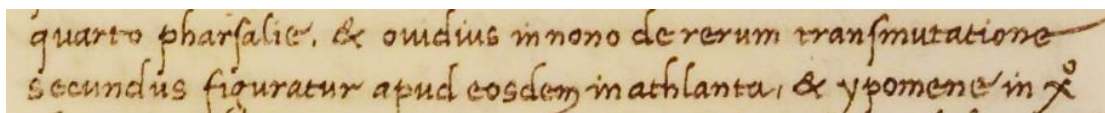 quarto pharſalie. & ouidius in nono de rerum tranſmutatione
secundus figuratur apud eosdem in athlanta, & ypomene in xº